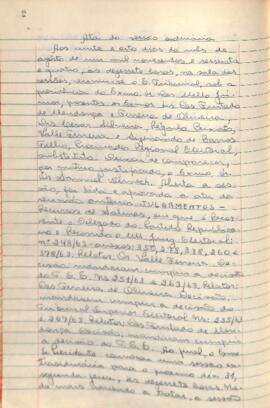 Ata da sessão ordinária
Aos vinte e oito dias do mês de
agosto de um mil novecentos e sessenta
e quatro, às dezessete horas, na sala das
sessões, reuniu-se o Tribunal, sob a
presidência do Exmo. Sr. Des. Mello Jú-
nior, presentes os Exmos. Srs. Des. Furtado
de Mendonça e Ferreira de Oliveira,
Drs. Cesar Silveira, Régulo Peixoto,
Valle Ferreira e Raymundo de Barros
Filho, Procurador Regional Eleitoral,
substituto. Deixou de comparecer,
por motivo justificado, o Exmo. Sr.
Aberta a ses-
são, foi lida e aprovada a ata da
reunião anterior. JULGAMENTOS:
Recursos de Salinas, em que é Recor-
rente o Delegado do Partido Republicano
e Recorrido o MM. Juiz Eleitoral:
nº 248/63 - anexos: 257, 258, 260 e
Relator: Dr. Valle Ferreira. De-
cisão: mandaram cumprir a decisão
do T.S.E. Nº 251/63 e 263/63. Relator:
Des. Ferreira de Oliveira. Decisão:
mandaram cumprir a decisão do
Tribunal Superior Eleitoral. Nº 255/63
e 267/63. Relator: Des. Furtado de Men-
donça. Decisão: mandaram cumprir
a decisão do T.S.E. Ao final, o Exmo.
Sr. Presidente convocou nova sessão ex-
traordinária para o próximo dia 31,
segunda-feira, às dezessete horas. Na-
da mais havendo a tratar, a sessão